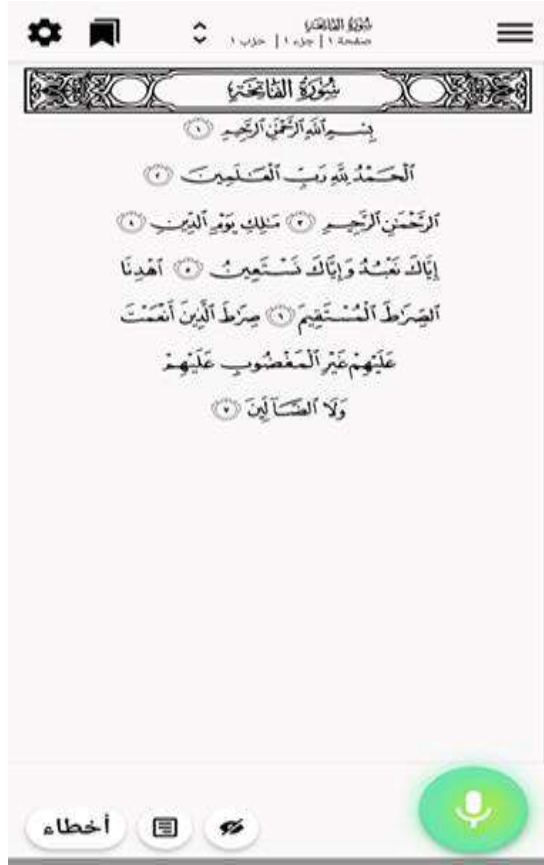 سُورَةُ الفَاتِحَةِ
صفحة ١ | جزء ١ | حزب ١
سُورَةُ الفَاتِحَةِ
بِسْمِ ٱللَّهِ ٱلرَّحْمَٰنِ ٱلرَّحِيمِ ١
ٱلْحَمْدُ لِلَّهِ رَبِّ ٱلْعَٰلَمِينَ ٢
ٱلرَّحْمَٰنِ ٱلرَّحِيمِ ٣ مَٰلِكِ يَوْمِ ٱلدِّينِ ٤
إِيَّاكَ نَعْبُدُ وَإِيَّاكَ نَسْتَعِينُ ٥ ٱهْدِنَا
ٱلصِّرَٰطَ ٱلْمُسْتَقِيمَ ٦ صِرَٰطَ ٱلَّذِينَ أَنْعَمْتَ
عَلَيْهِمْ غَيْرِ ٱلْمَغْضُوبِ عَلَيْهِمْ
وَلَا ٱلضَّآلِّينَ ٧
أخطاء